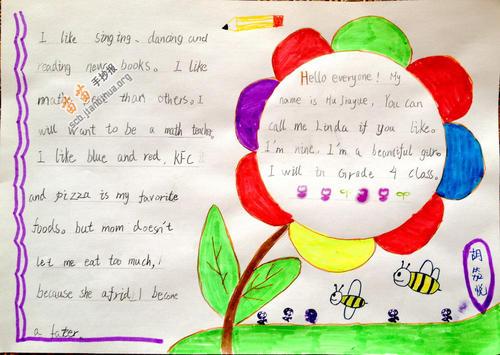 I like singing, dancing and
reading new books. I like
math than others. I
will want to be a math teacher.
I like blue and red, KFC
and pizza is my favorite
foods. but mom doesn't
let me eat too much,
because she afrid I become
a fater.
Hello everyone! My
name is Hu Jiayue, You can
call me Linda if you like.
I'm nine. I'm a beautiful girl.
I will in Grade 4 class.
胡 悦
手抄报
scb.jianghua.org